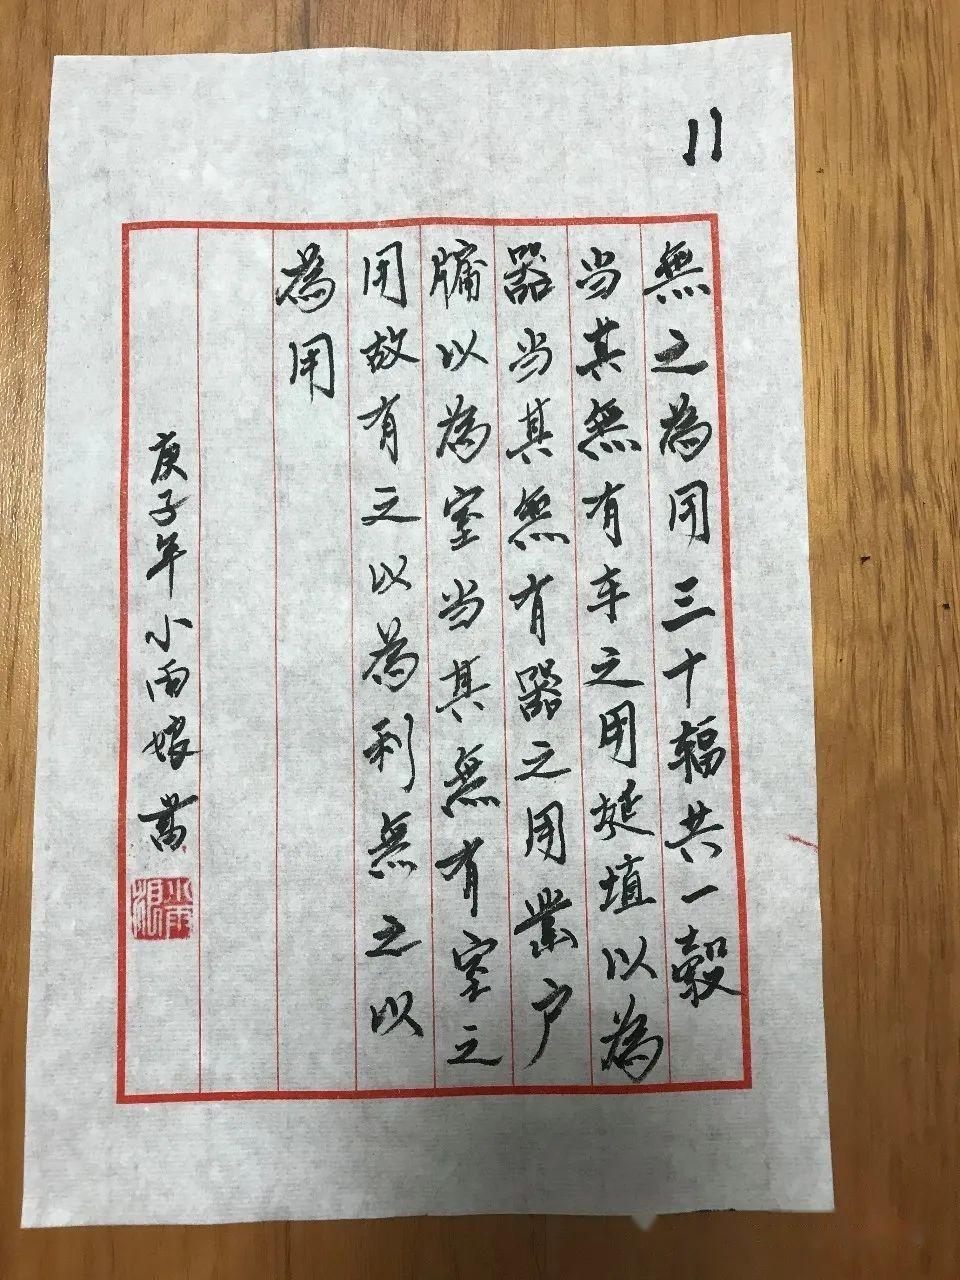 11
無之為用三十辐共一毂
当其無有车之用埏埴以為
器当其無有器之用凿户
牖以為室当其無有室之
用故有之以為利無之以
為用
庚子年小雨娘
小雨